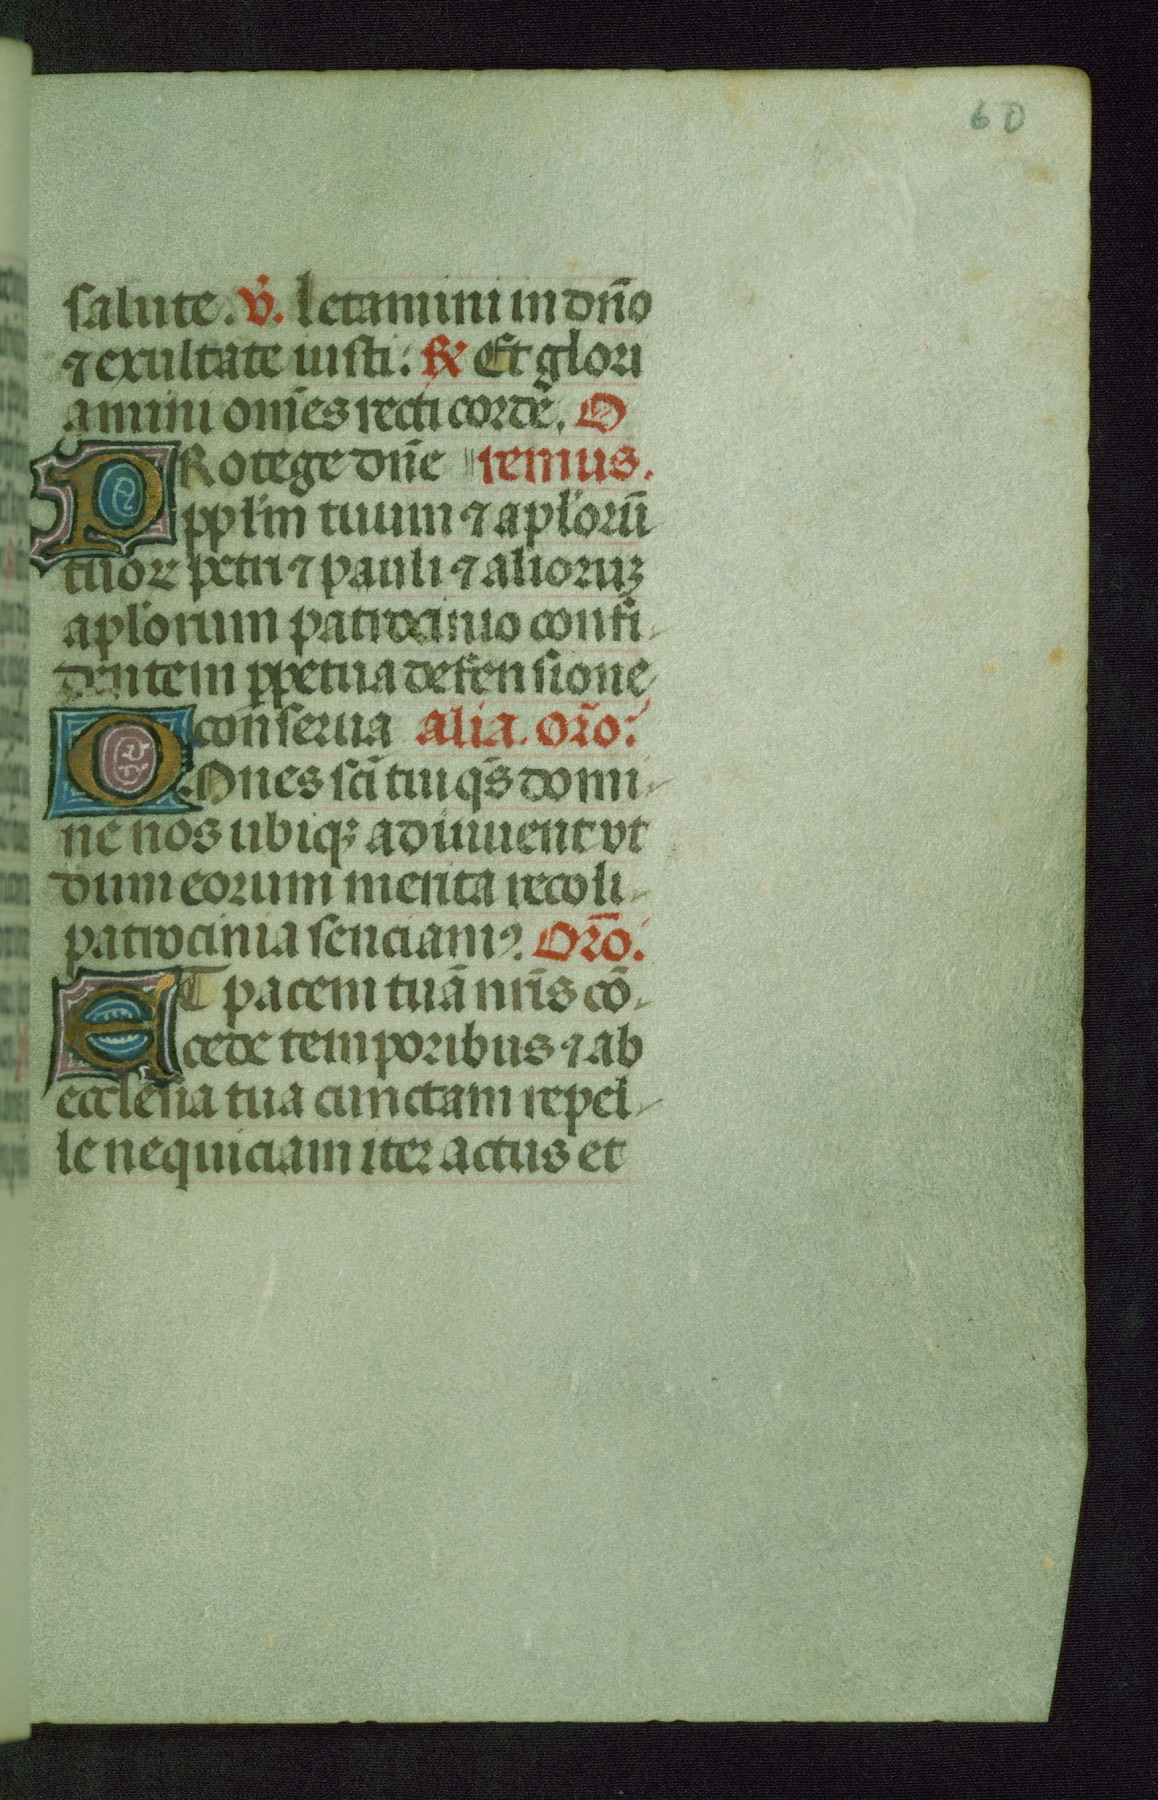 60
salute. v̇. letamini in dn̄o
⁊ exultate iusti: ℞ Et glori
amini om̄es recti corde. O
PRotege dn̄e remus.
pplm̄ tuum ⁊ aplōrū
tuoꝝ petri ⁊ pauli ⁊ alioruꝫ
aplōrum patrocinio confi-
dentem ꝑpetua defensione
conserua alia. Or̄o:
OMnes sc̄i tui qs̄ domi-
ne nos ubiqꝫ adiuuent vt
dum eorum merita recoli-
patrocinia senciamꝰ. Or̄o.
ET pacem tuā nr̄is cō-
cede temporibus ⁊ ab
ecclesia tua cunctam repel-
le nequiciam iter actus et